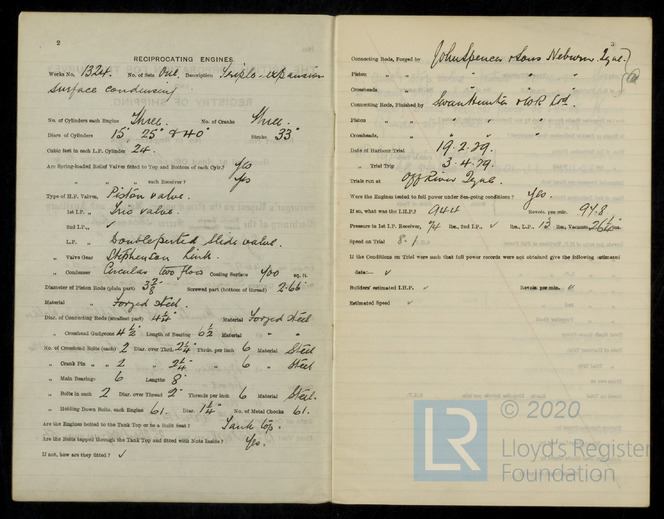 2
RECIPROCATING ENGINES.
Works No. 1324. No. of Sets One. Description Triple-expansion
surface condensing
No. of Cylinders each Engine Three. No. of Cranks Three.
Diars of Cylinders 15" 25" & 40" Stroke 33"
Cubic feet in each L.P. Cylinder 24.
Are Spring-loaded Relief Valves fitted to Top and Bottom of each Cylr.? Yes
" " " each Receiver? Yes
Type of H.P. Valves, Piston valve.
" 1st I.P. " valve.
" 2nd I.P. " ✓
" L.P. " Double ported Slide valve.
" Valve Gear Stephenson Link.
" Condenser Circular two flow Cooling Surface 400 sq. ft.
Diameter of Piston Rods (plain part) Screwed part (bottom of thread) 2.66"
Material " Forged Steel.
Diar. of Connecting Rods (smallest part) 4 1/4" Material Forged Steel
" Crosshead Gudgeons 4 1/2" Length of Bearing 6 1/2 Material " "
No. of Crosshead Bolts (each) 2 Diar. over Thrd. 2 1/4" Thrds. per inch 6 Material Steel
" Crank Pin " " 2 " 2 1/4" " 6 " Steel
" Main Bearings 6 Lengths 8"
" Bolts in each 2 Diar. over Thread 2" Threads per inch 6 Material Steel.
" Holding Down Bolts, each Engine 61. Diar. 1 1/4" No. of Metal Chocks 61.
Are the Engines bolted to the Tank Top or to a Built Seat? Tank top.
Are the Bolts tapped through the Tank Top and fitted with Nuts Inside? Yes.
If not, how are they fitted? ✓
3
Connecting Rods, Forged by John Spencer & Sons Newburn. Tyne.
Piston " " "
Crossheads " " "
Connecting Rods, Finished by Swan Hunter & W.R. Ltd.
Piston " " "
Crossheads, " " "
Date of Harbour Trial 19.2.29.
" Trial Trip 3.4.29.
Trials run at Off River Tyne.
Were the Engines tested to full power under Sea-going conditions? Yes.
If so, what was the I.H.P.? 944 Revols. per min. 97.8
Pressure in 1st I.P. Receiver, 74 lbs., 2nd I.P. ✓ lbs., L.P., 13 lbs., Vacuum, ins.
Speed on Trial 8.1
If the Conditions on Trial were such that full power records were not obtained give the following estimated
data:— ✓
Builders' estimated I.H.P. ✓ Revols. per min. ✓
Estimated Speed ✓
LR
© 2020
Lloyd's Register
Foundation